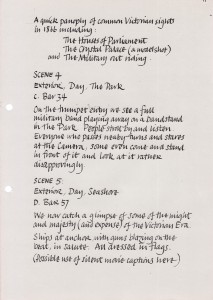 A quick panoply of common Victorian sights
in 1866 including:
The Houses of Parliament
The Crystal Palace (a model shot)
and The Military out riding.
SCENE 4
Exterior, Day, The Park
C. Bar 34
On the trumpet entry we see a full
military band playing away on a bandstand
in The Park. People stroll by and listen.
Everyone who passes nearby turns and stares
at the camera, some even come and stand
in front of it and look at it rather
disapprovingly.
SCENE 5
Exterior, Day, Seashore
D. Bar 57
We now catch a glimpse of some of the might
and majesty (and expense) of the Victorian Era.
Ships at anchor with guns blazing on the
beat, in salute. All dressed in flags.
(Possible use of silent movie captions here)